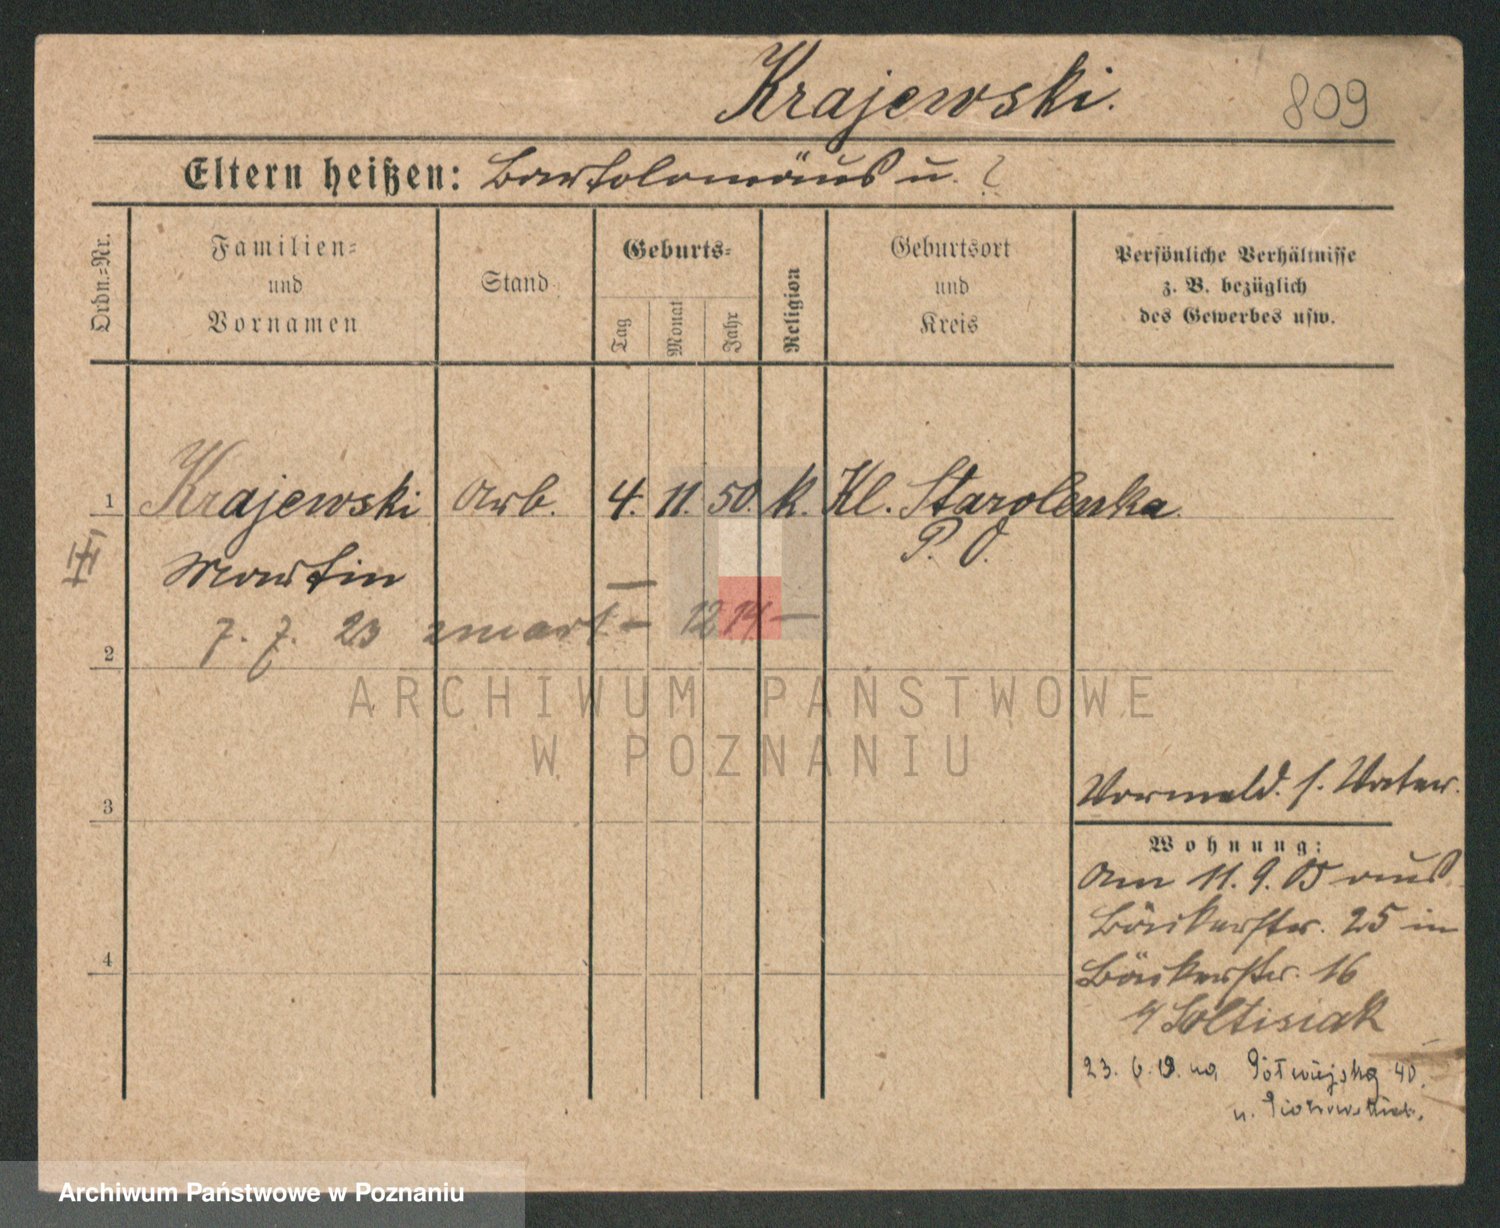 Krajewski.
809
Eltern heißen: Bartolomäus u. ?
Ordn.-Nr.
Familien- und Vornamen
Stand
Geburts-
Tag
Monat
Jahr
Religion
Geburtsort und Kreis
Persönliche Verhältnisse z. B. bezüglich des Gewerbes usw.
1 Krajewski Arb. 4. 11. 50. k. Kl. Starolenka
P. O.
III
Martin
7. 7. 23 zmarł - 1214 -
2
ARCHIWUM PAŃSTWOWE
W POZNANIU
3
Vormeld. s. Vater.
Wohnung:
Am 11. 9. 05 aus
Bäckerstr. 25 in
4
Bäckerstr. 16
Soltisiak
23. 6. 19. na Półwiejską 40.
Archiwum Państwowe w Poznaniu